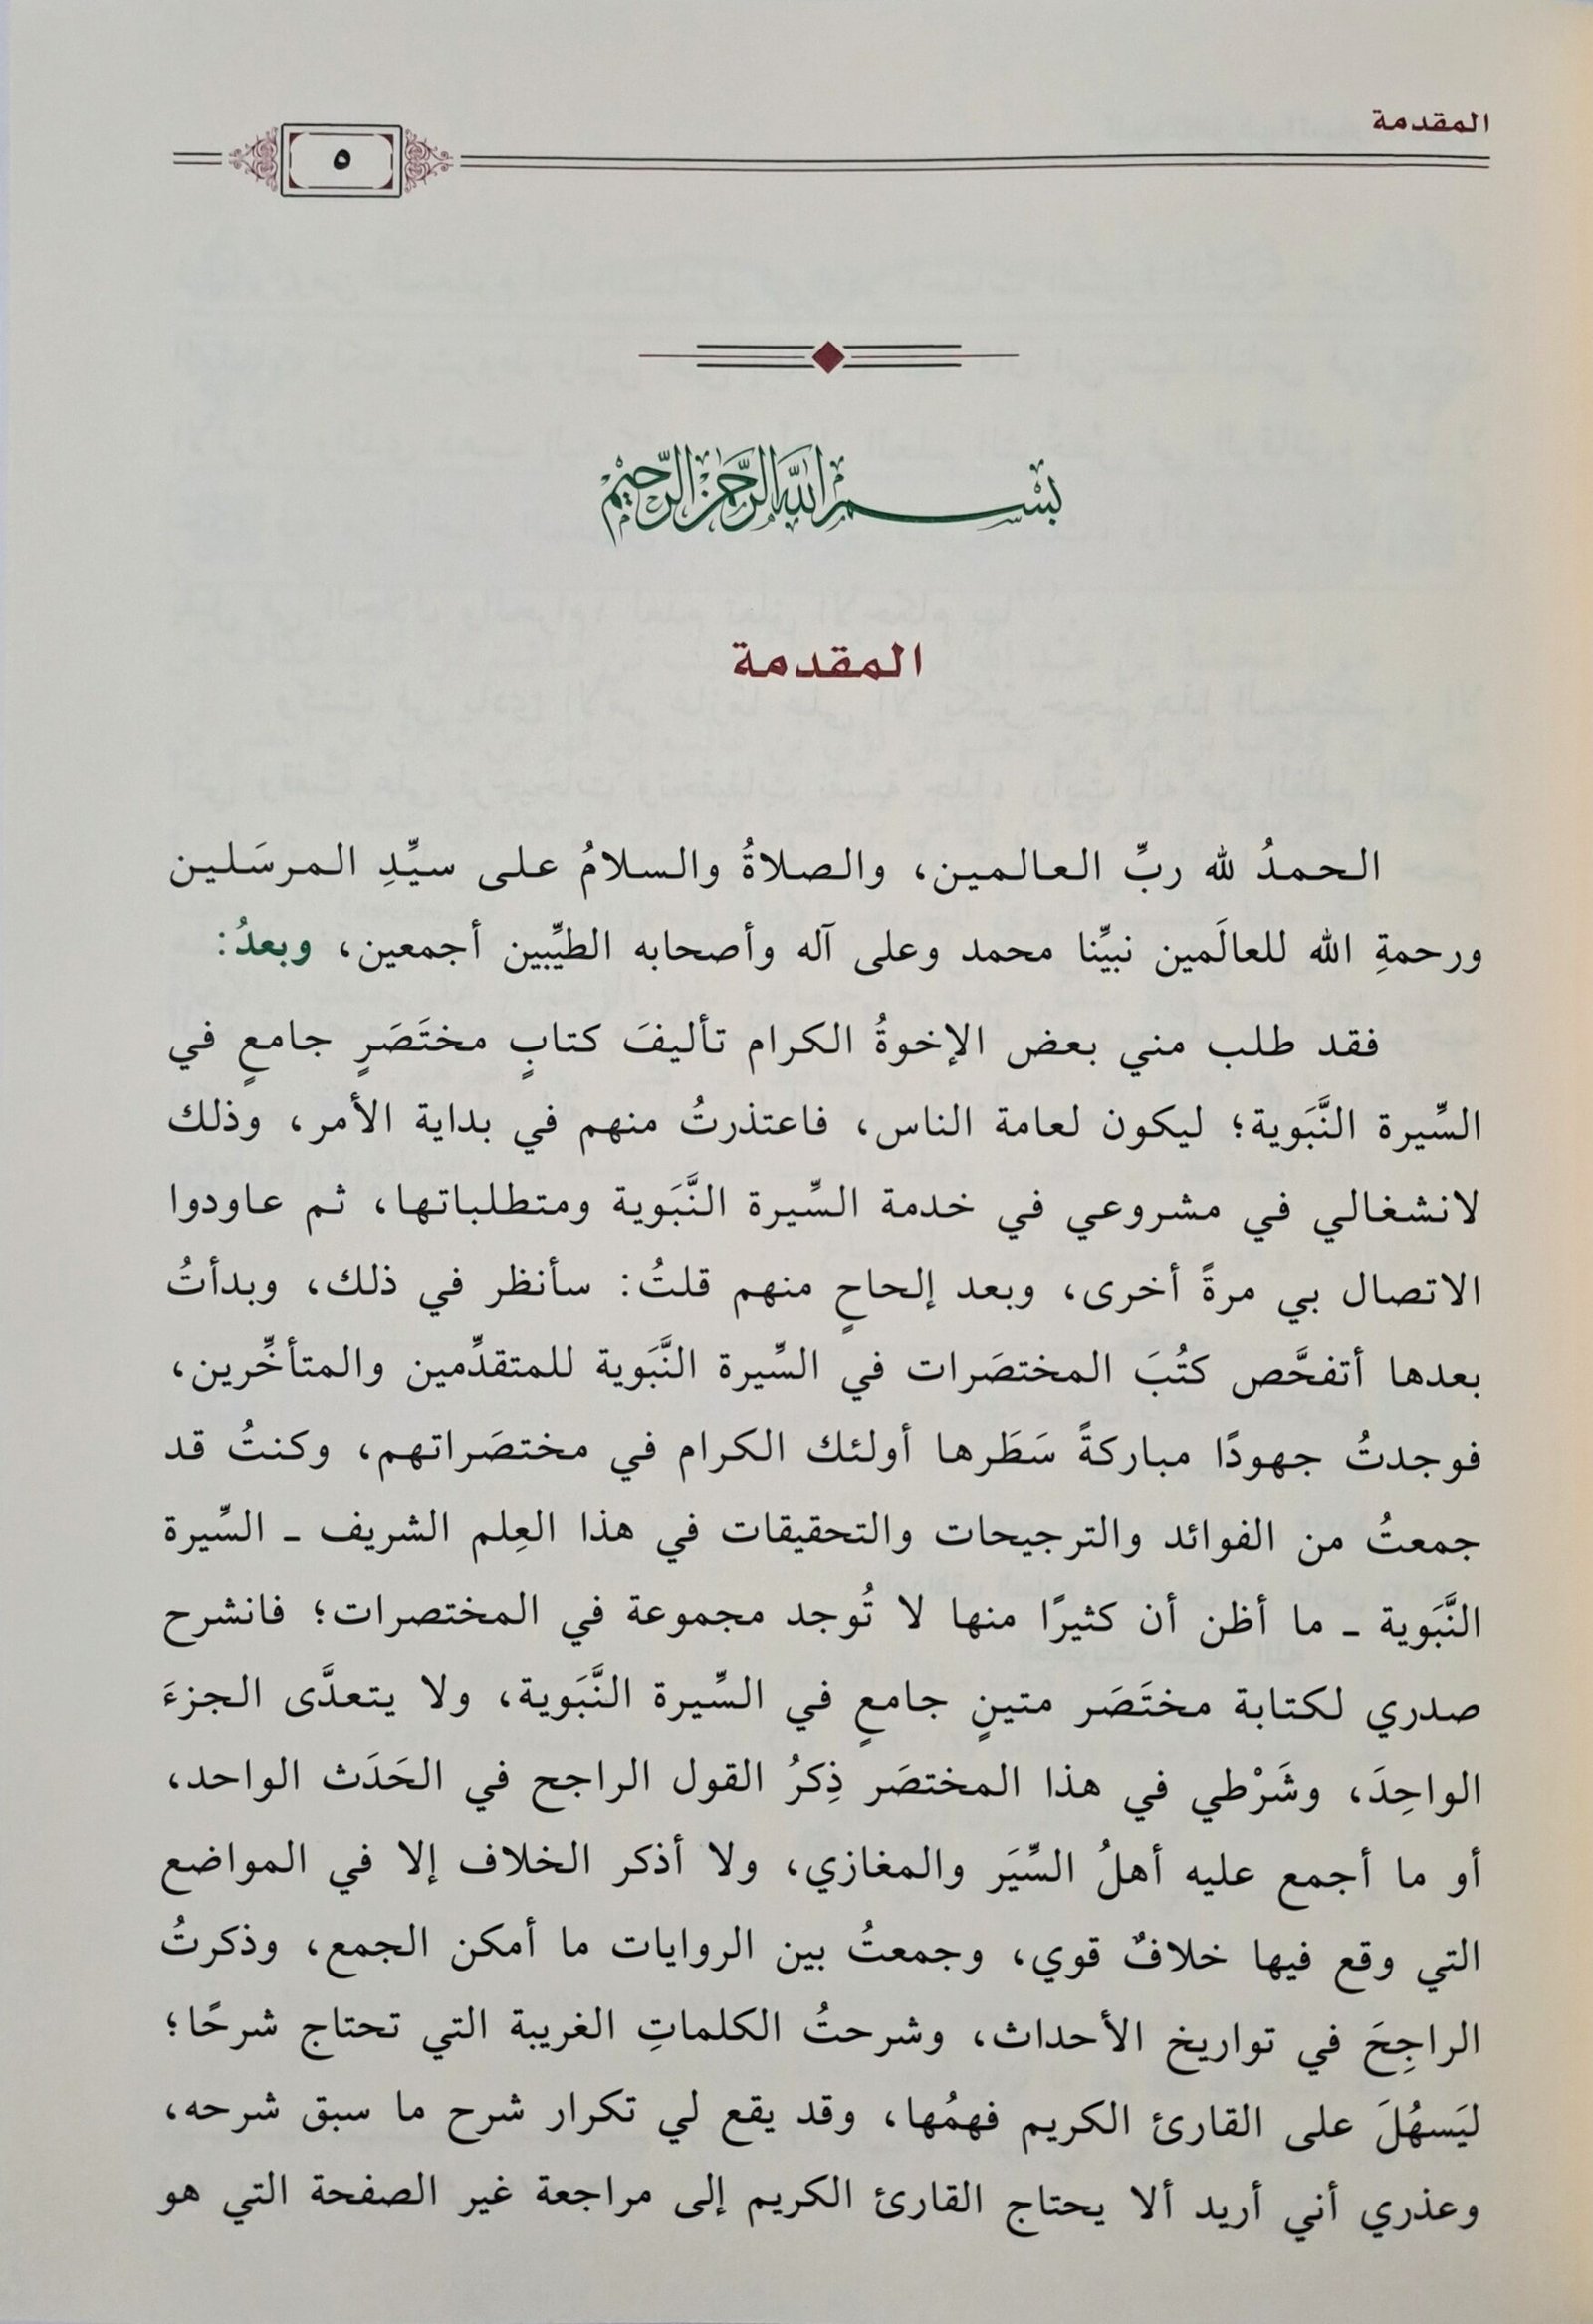 المقدمة
٥
بسم الله الرحمن الرحيم
المقدمة
الحمدُ لله ربِّ العالمين، والصلاةُ والسلامُ على سيِّدِ المرسَلين
ورحمةِ الله للعالَمين نبيِّنا محمد وعلى آله وأصحابه الطيِّبين أجمعين، وبعدُ:
فقد طلب مني بعض الإخوةُ الكرام تأليفَ كتابٍ مختَصَرٍ جامعٍ في
السِّيرة النَّبَوية؛ ليكون لعامة الناس، فاعتذرتُ منهم في بداية الأمر، وذلك
لانشغالي في مشروعي في خدمة السِّيرة النَّبَوية ومتطلباتها، ثم عاودوا
الاتصال بي مرةً أخرى، وبعد إلحاحٍ منهم قلتُ: سأنظر في ذلك، وبدأتُ
بعدها أتفحَّص كتُبَ المختصَرات في السِّيرة النَّبَوية للمتقدِّمين والمتأخِّرين،
فوجدتُ جهودًا مباركةً سَطَرها أولئك الكرام في مختصَراتهم، وكنتُ قد
جمعتُ من الفوائد والترجيحات والتحقيقات في هذا العِلم الشريف ـ السِّيرة
النَّبَوية ـ ما أظن أن كثيرًا منها لا تُوجد مجموعة في المختصرات؛ فانشرح
صدري لكتابة مختَصَر متينٍ جامعٍ في السِّيرة النَّبَوية، ولا يتعدَّى الجزءَ
الواحِدَ، وشَرْطي في هذا المختصَر ذِكرُ القول الراجح في الحَدَث الواحد،
أو ما أجمع عليه أهلُ السِّيَر والمغازي، ولا أذكر الخلاف إلا في المواضع
التي وقع فيها خلافٌ قوي، وجمعتُ بين الروايات ما أمكن الجمع، وذكرتُ
الراجِحَ في تواريخ الأحداث، وشرحتُ الكلماتِ الغريبة التي تحتاج شرحًا؛
ليَسهُلَ على القارئ الكريم فهمُها، وقد يقع لي تكرار شرح ما سبق شرحه،
وعذري أني أريد ألا يحتاج القارئ الكريم إلى مراجعة غير الصفحة التي هو